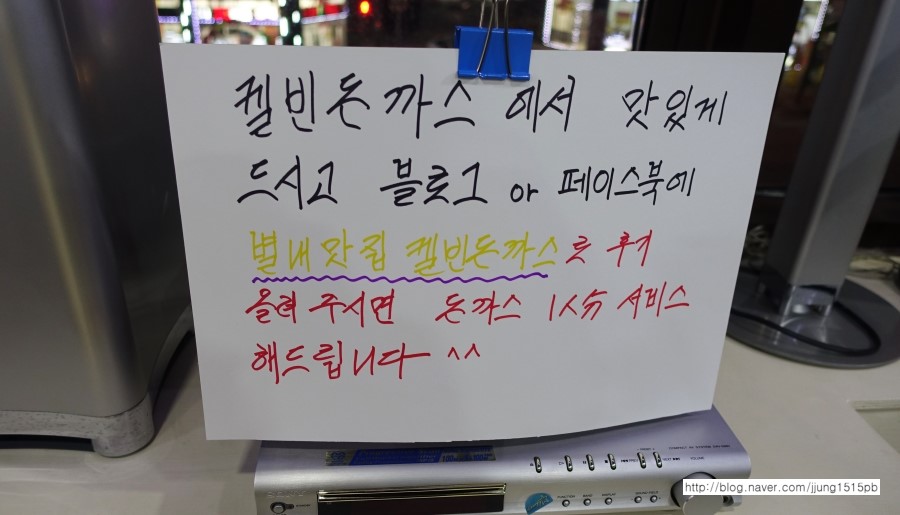 켈빈돈까스 에서 맛있게
드시고 블로그 or 페이스북에
별내맛집 켈빈돈까스로 후기
올려 주시면 돈까스 1人分 서비스
해드립니다 ^^
http://blog.naver.com/jjung1515pb